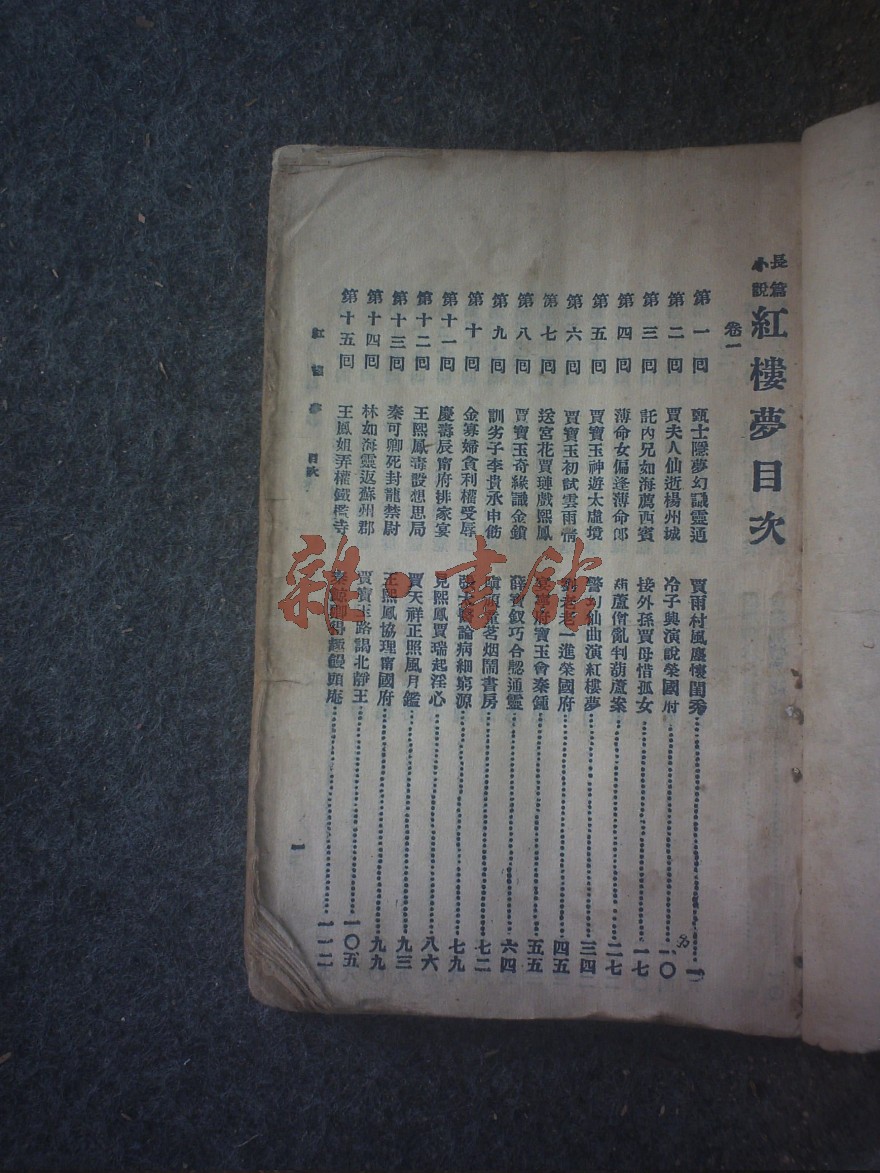 長篇小說 紅樓夢目次
卷一
第一回 甄士隱夢幻識靈通 賈雨村風塵懷閨秀 一
第二回 賈夫人仙逝楊州城 冷子興演說榮國府 一〇
第三回 託內兄如海薦西賓 接外孫賈母惜孤女 一七
第四回 薄命女偏逢薄命郎 葫蘆僧亂判葫蘆案 二七
第五回 賈寶玉神遊太虛境 警幻仙曲演紅樓夢 三四
第六回 賈寶玉初試雲雨情 劉老老一進榮國府 四五
第七回 送宮花賈璉戲熙鳳 宴甯府寶玉會秦鍾 五五
第八回 賈寶玉奇緣識金鎖 薛寶釵巧合認通靈 六四
第九回 訓劣子李貴承申飭 嗔頑童茗烟鬧書房 七二
第十回 金寡婦貪利權受辱 張太醫論病細窮源 七九
第十一回 慶壽辰甯府排家宴 見熙鳳賈瑞起淫心 八六
第十二回 王熙鳳毒設想思局 賈天祥正照風月鑑 九三
第十三回 秦可卿死封龍禁尉 王熙鳳協理甯國府 九九
第十四回 林如海靈返蘇州郡 賈寶玉路謁北靜王 一〇五
第十五回 王鳳姐弄權鐵檻寺 秦鯨卿得趣饅頭庵 一一二
紅樓夢 目次
一
雜·書館